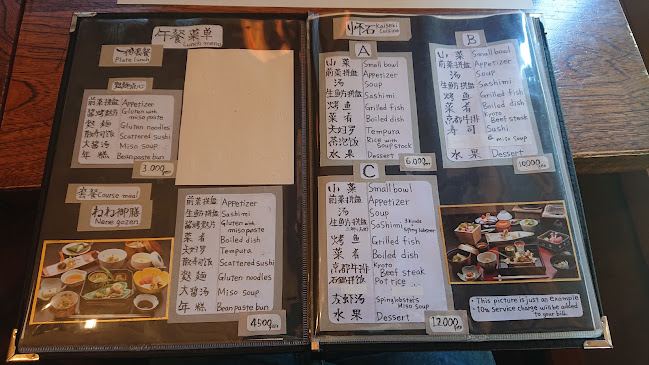 午餐菜单
Lunch menu
一碟套餐
Plate lunch
前菜拼盘 Appetizer
酱烤麩片 Gluten with miso paste
麩麺 Gluten noodles
散寿司饭 Scattered Sushi
大酱汤 Miso Soup
年糕 Bean paste bun
3.000yen
套餐 Course meal
ねね御膳
Nene gozen
前菜拼盘 Appetizer
生鱼片拼盘 Sashimi
酱烤麩片 Gluten with miso paste
菜肴 Boiled dish
天妇罗 Tempura
散寿司饭 Scattered Sushi
麩麺 Gluten noodles
大酱汤 Miso Soup
年糕 Bean paste bun
4500yen
怀石 Kaiseki Cuisine
A
山菜 Small bowl
前菜拼盘 Appetizer
汤 Soup
生鱼片拼盘 Sashimi
烤鱼 Grilled fish
菜肴 Boiled dish
天妇罗 Tempura
茶泡饭 Rice with soup stock
水果 Dessert
6.000yen
B
山菜 Small bowl
前菜拼盘 Appetizer
汤 Soup
生鱼片拼盘 Sashimi
烤鱼 Grilled fish
菜肴 Boiled dish
京都牛排 Kyoto Beef steak
寿司 Sushi
& miso soup
水果 Dessert
10000yen
C
山菜 Small bowl
前菜拼盘 Appetizer
汤 Soup
生鱼片拼盘 Sashimi 3 kinds
Spiny lobster
烤鱼 Grilled fish
菜肴 Boiled dish
京都牛排 Kyoto Beef steak
石锅拌饭 Pot rice
大虾汤 Spiny lobster's Miso Soup
水果 Dessert
12.000yen
• This picture is just an example
• 10% service charge will be added to your bill.